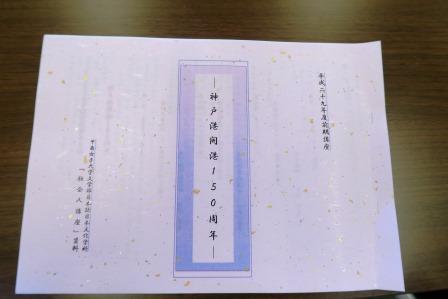 平成二十九年度前期講座
―神戸港開港150周年―
甲南女子大学文学部日本語日本文化学科
「社会人講座」資料